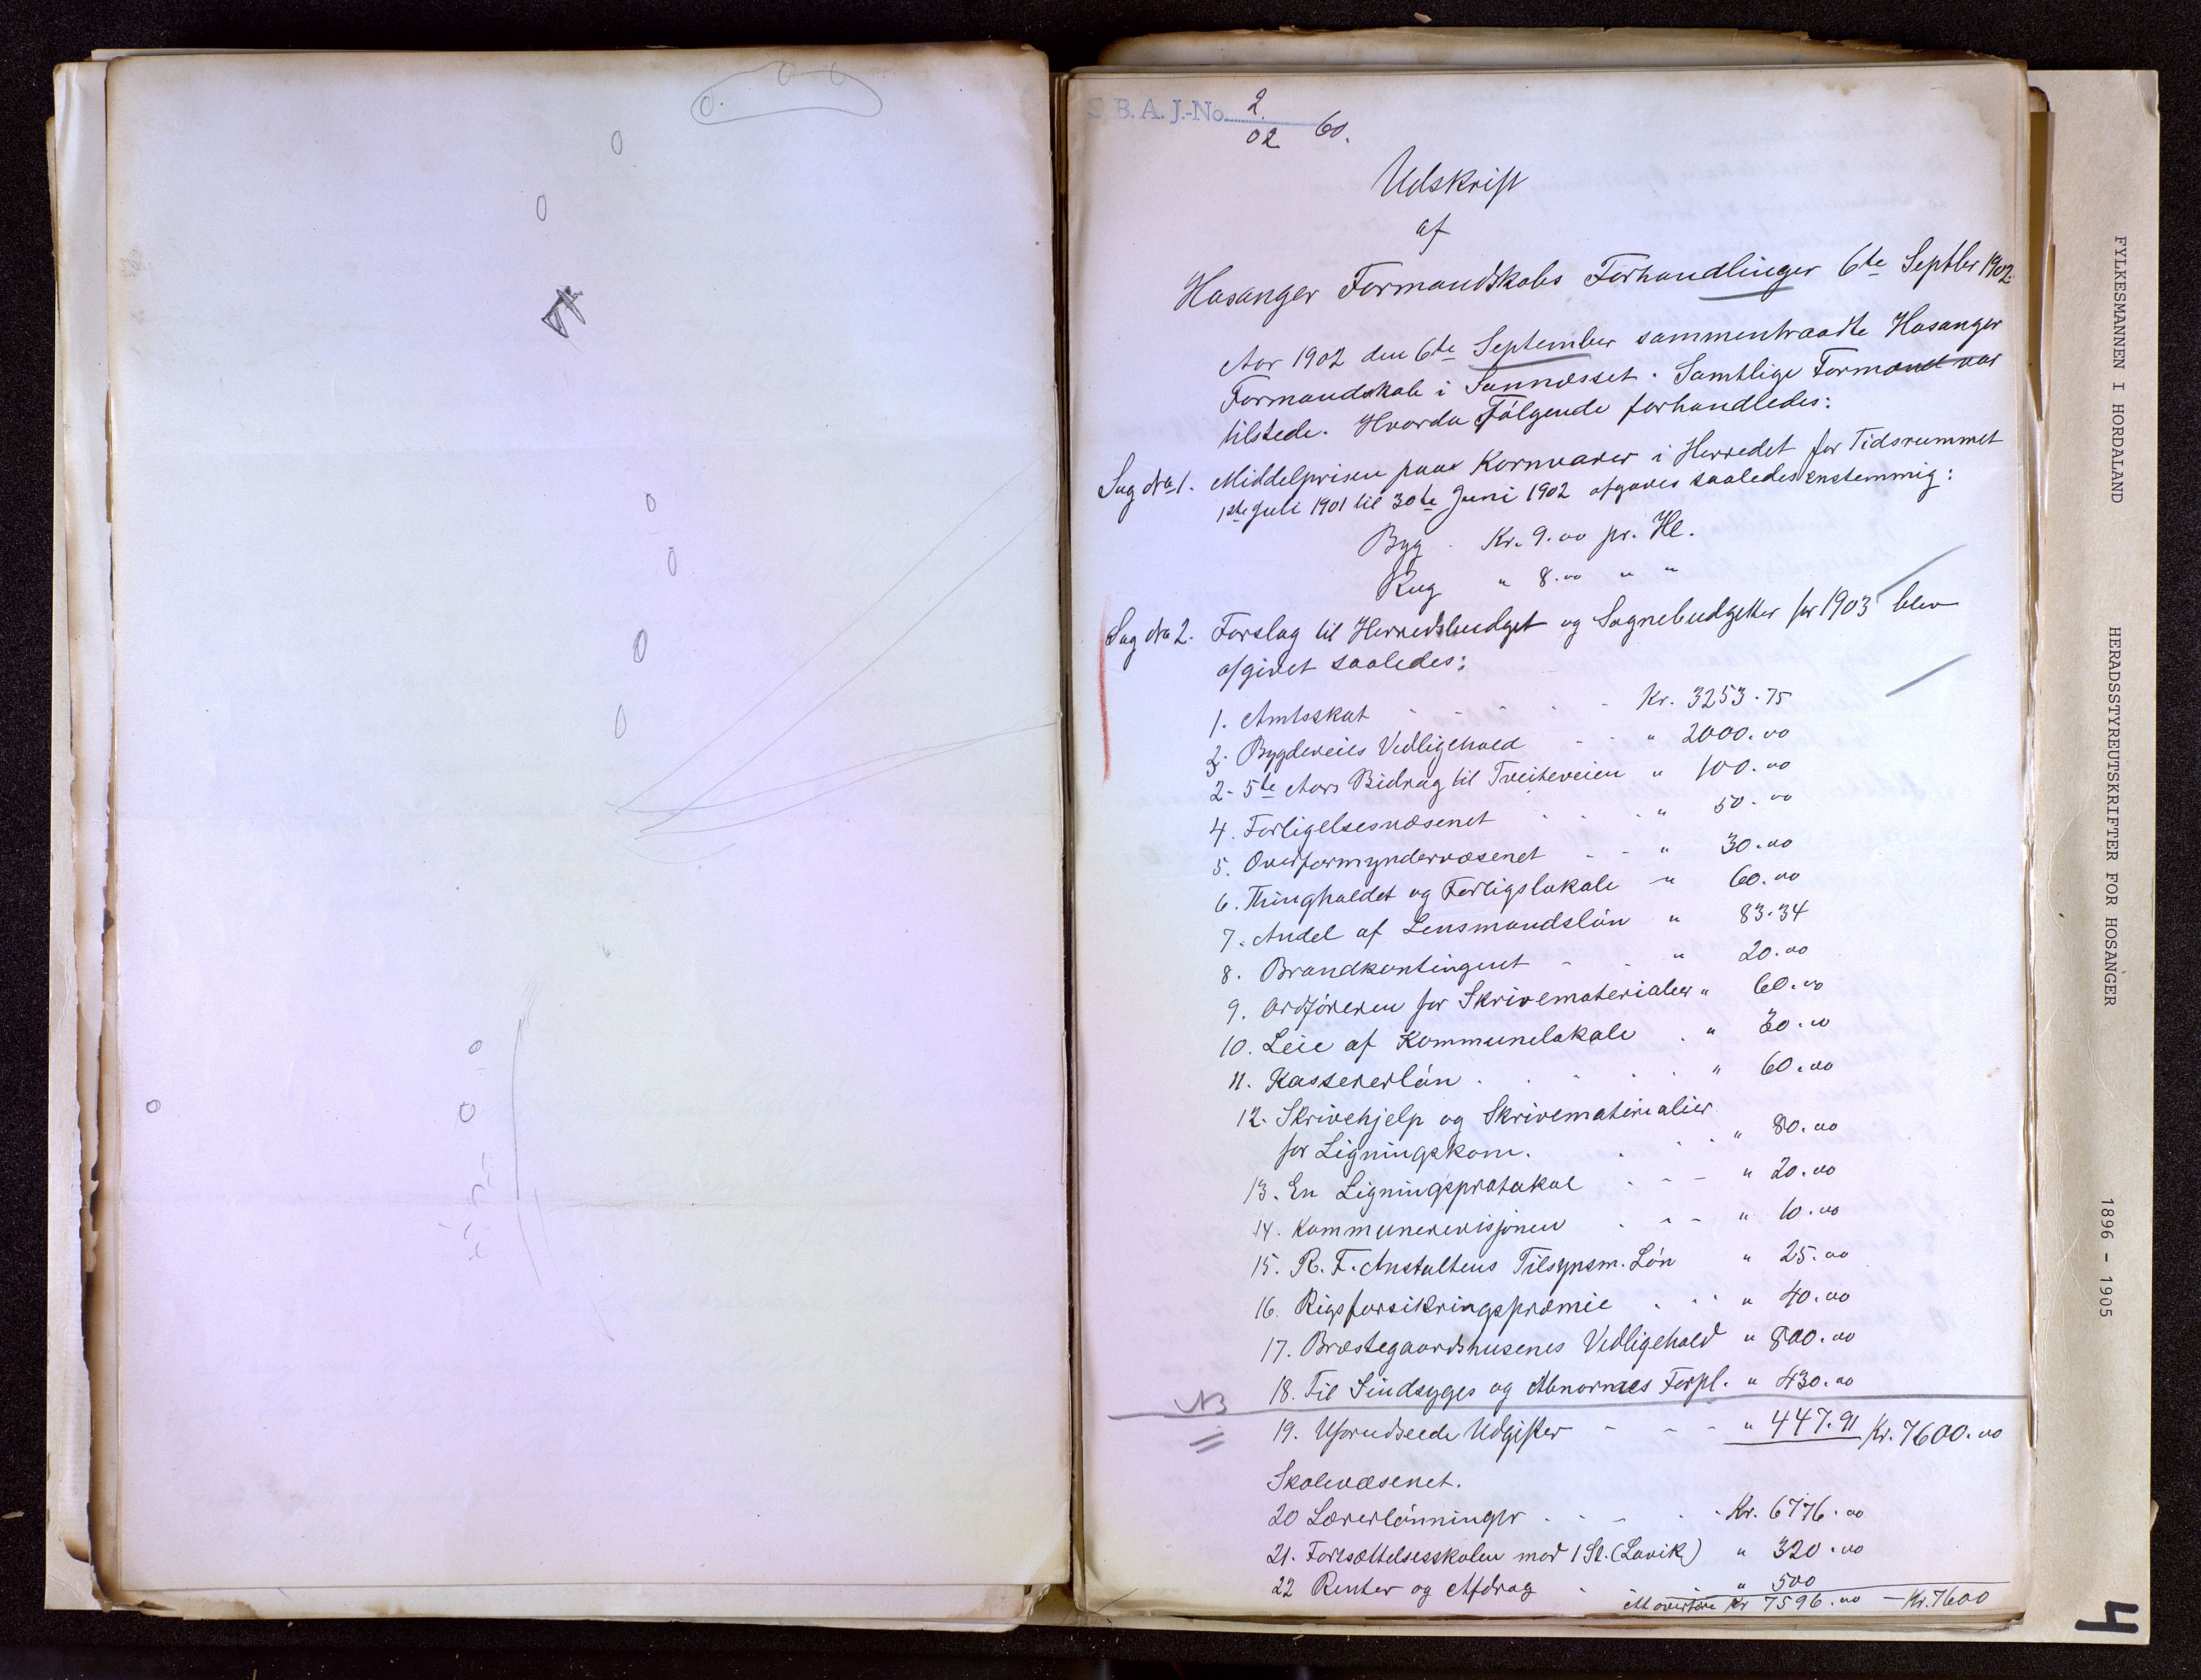 S. B. A. J.-No. 2.
02 60.
Udskrift
af
Hosanger Formandskabs Forhandlinger 6te Septbr 1902.
Aar 1902 den 6te September sammentraadte Hosanger
Formandskab i Sannæsset. Samtlige Formænd var
tilstede. Hvorda Følgende forhandledes:
Sag No 1. Middelprisen paa Kornvarer i Herredet for Tidsrummet
1ste Juli 1901 til 30te Juni 1902 afgaves saaledes enstemmig:
Byg - Kr. 9.00 pr. Hl.
Rug " 8.00 " "
Sag No 2. Forslag til Herredsbudget og Sognebudgetter for 1903 blev
afgivet saaledes:
1. Amtsskat - - - - - Kr. 3253.75
2. Bygdeveies Vedligehold - - " 2000.00
2- 5te Aars Bidrag til Tveiteveien " 100.00
4. Forligelsesvæsenet . . . " 50.00
5. Overformyndervæsenet - - " 30.00
6. Thingholdet og Forligslokale - " 60.00
7. Andel af Lensmandsløn " 83.34
8. Brandkontingent - - " 20.00
9. Ordføreren for Skrivematerialier " 60.00
10. Leie af Kommunelokale . " 30.00
11. Kassererløn . . . . . " 60.00
12. Skrivehjelp og Skrivematerialier
for Ligningskom. . . . " 80.00
13. En Ligningsprotokol . - - " 20.00
14. Kommunerevisjonen . - - " 10.00
15. R. F. Anstaltens Tilsynsm. Løn " 25.00
16. Rigsforsikringspræmie . . . " 40.00
17. Præstegaardshusenes Vedligehold " 800.00
18. Til Sindsyges og Abnormes Forpl. " 430.00
NB
19. Uforudseede Udgifter - - - - " 447.91 Kr. 7600.00
Skolevæsenet.
20 Lærerlønninger . - - . . Kr. 6776.00
21. Fortsættelsesskolen mod 1 St. (Lavik) " 320.00
22 Renter og Afdrag . " 500
At overføre Kr 7596.00 - Kr. 7600
FYLKESMANNEN I HORDALAND HERADSSTYREUTSKRIFTER FOR HOSANGER 1896 - 1905
4